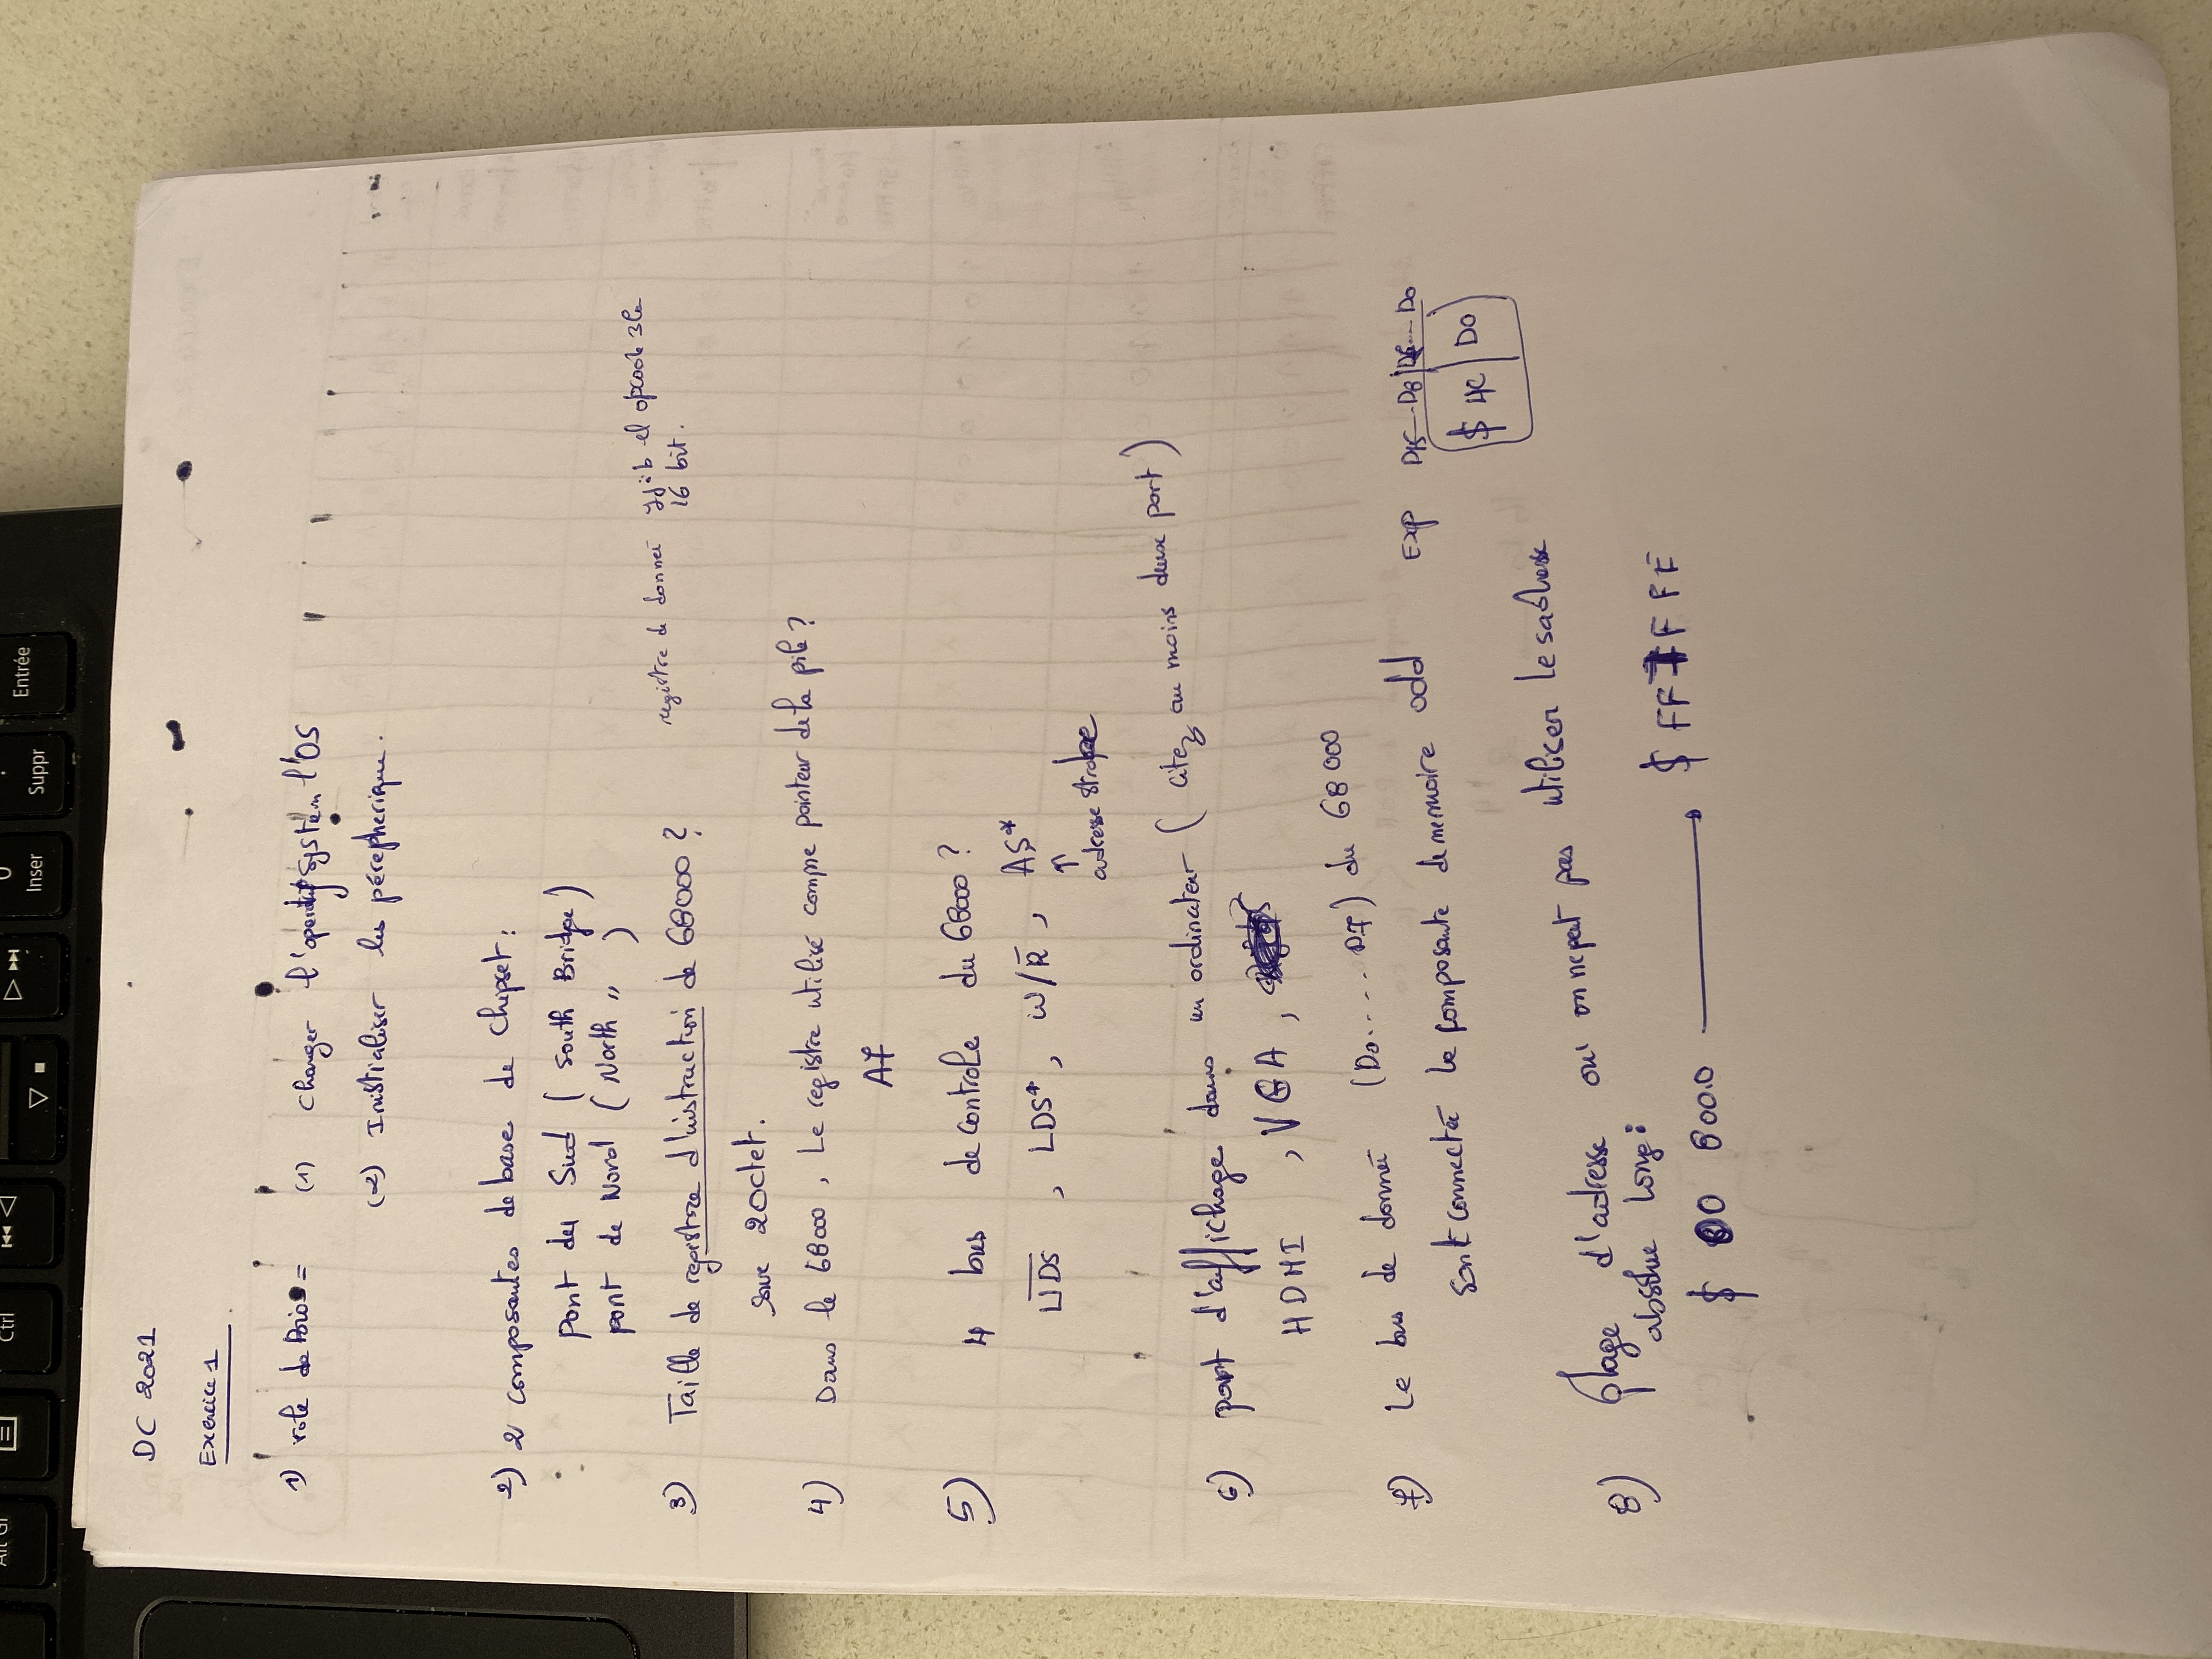 Alt Gr
Ctrl
Inser
Suppr
Entrée
DC 2021
Exercice 1
1) role de Bios = (1) Charger l'operating system l'OS
(2) Inistialiser les pérepherique.
2) 2 composantes de base de Chipset:
pont du Sud ( South Bridge )
pont de Nord ( North 〃 )
3) Taille de registre d'instruction de 68000 ?
registre de donneé yjib el opcode 3la
16 bit.
sur 2 Octet.
4) Dans le 68000, Le registre utilisé comme pointeur de la pile ?
A7
5) 4 bus de controle du 68000 ?
U̅D̅S̅ , LDS* , W/R̅ , AS*
↑
adresse strobe
6) port d'affichage dans un ordinateur ( citez au moins deux port )
HDMI , VGA ,
7) Le bus de donneé (D0..... D7) du 68000
sont connecteé le composante de memoire odd Exp D15---D8/D7--- D0
$ 4C | D0
8) plage d'adresse où on ne peut pas utiliser
absolue long:
$ 00 8000 → $ FF 7F FE